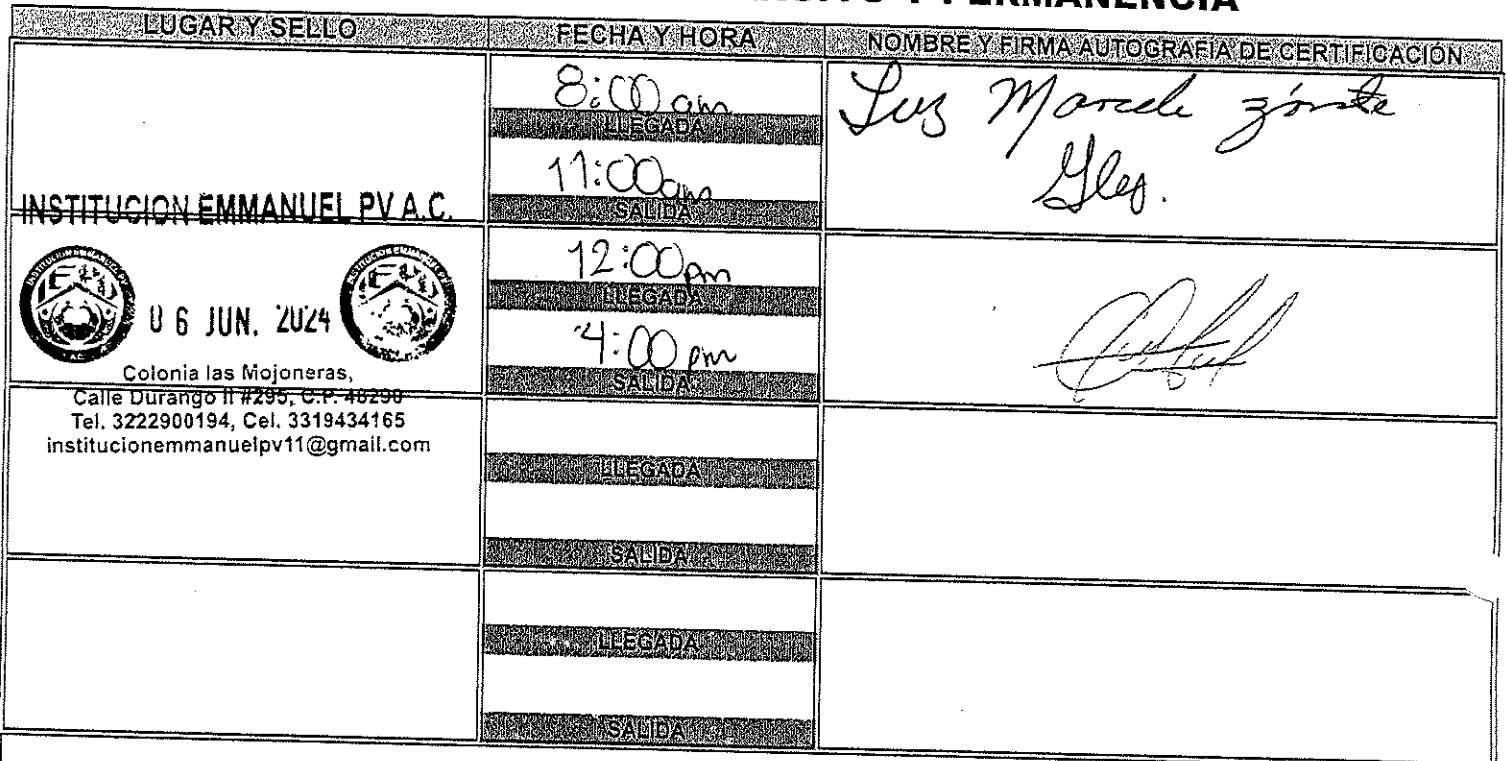 Y PERMANENCIA
LUGAR Y SELLO
FECHA Y HORA
NOMBRE Y FIRMA AUTOGRAFIA DE CERTIFICACIÓN
8:00 am
LLEGADA
11:00 am
SALIDA
Luz Marcela
INSTITUCION EMMANUEL PV A.C.
06 JUN. 2024
Colonia las Mojoneras,
Calle Durango II #295, C.P. 48290
Tel. 3222900194, Cel. 3319434165
institucionemmanuelpv11@gmail.com
12:00 pm
LLEGADA
4:00 pm
SALIDA
LLEGADA
SALIDA
LLEGADA
SALIDA